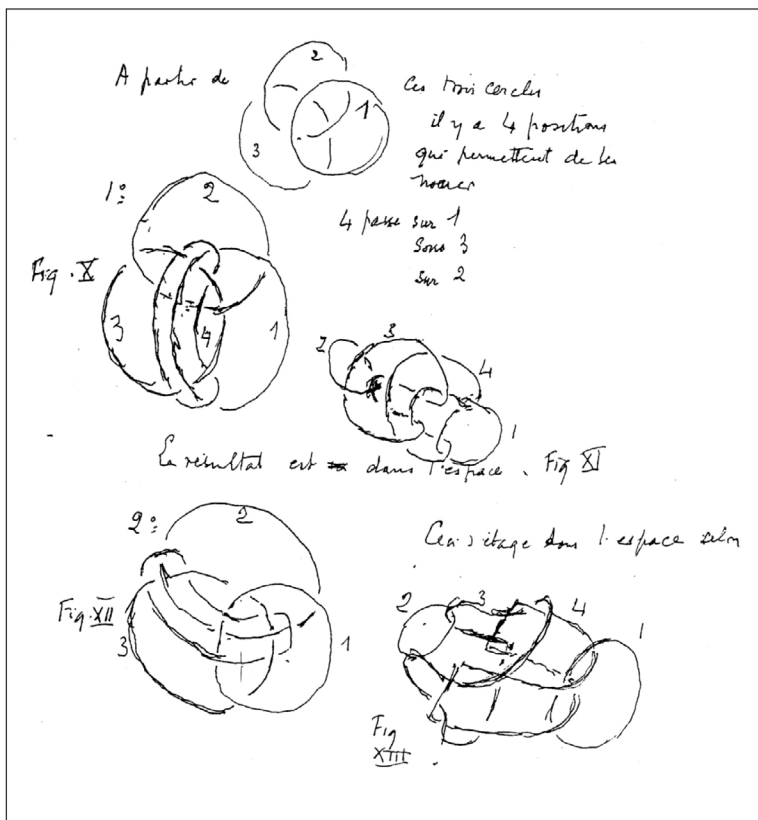 A partir de
2
1
3
Ces trois cercles
il y a 4 positions
qui permettent de les
nouer
1º:
2
4 passe sur 1
Sous 3
sur 2
Fig. X
3
4
1
3
2
4
1
Le résultat est dans l'espace. Fig XI
2º:
2
Ceci s'étage dans l'espace selon
Fig. XII
3
1
2
3
4
1
Fig
XIII.